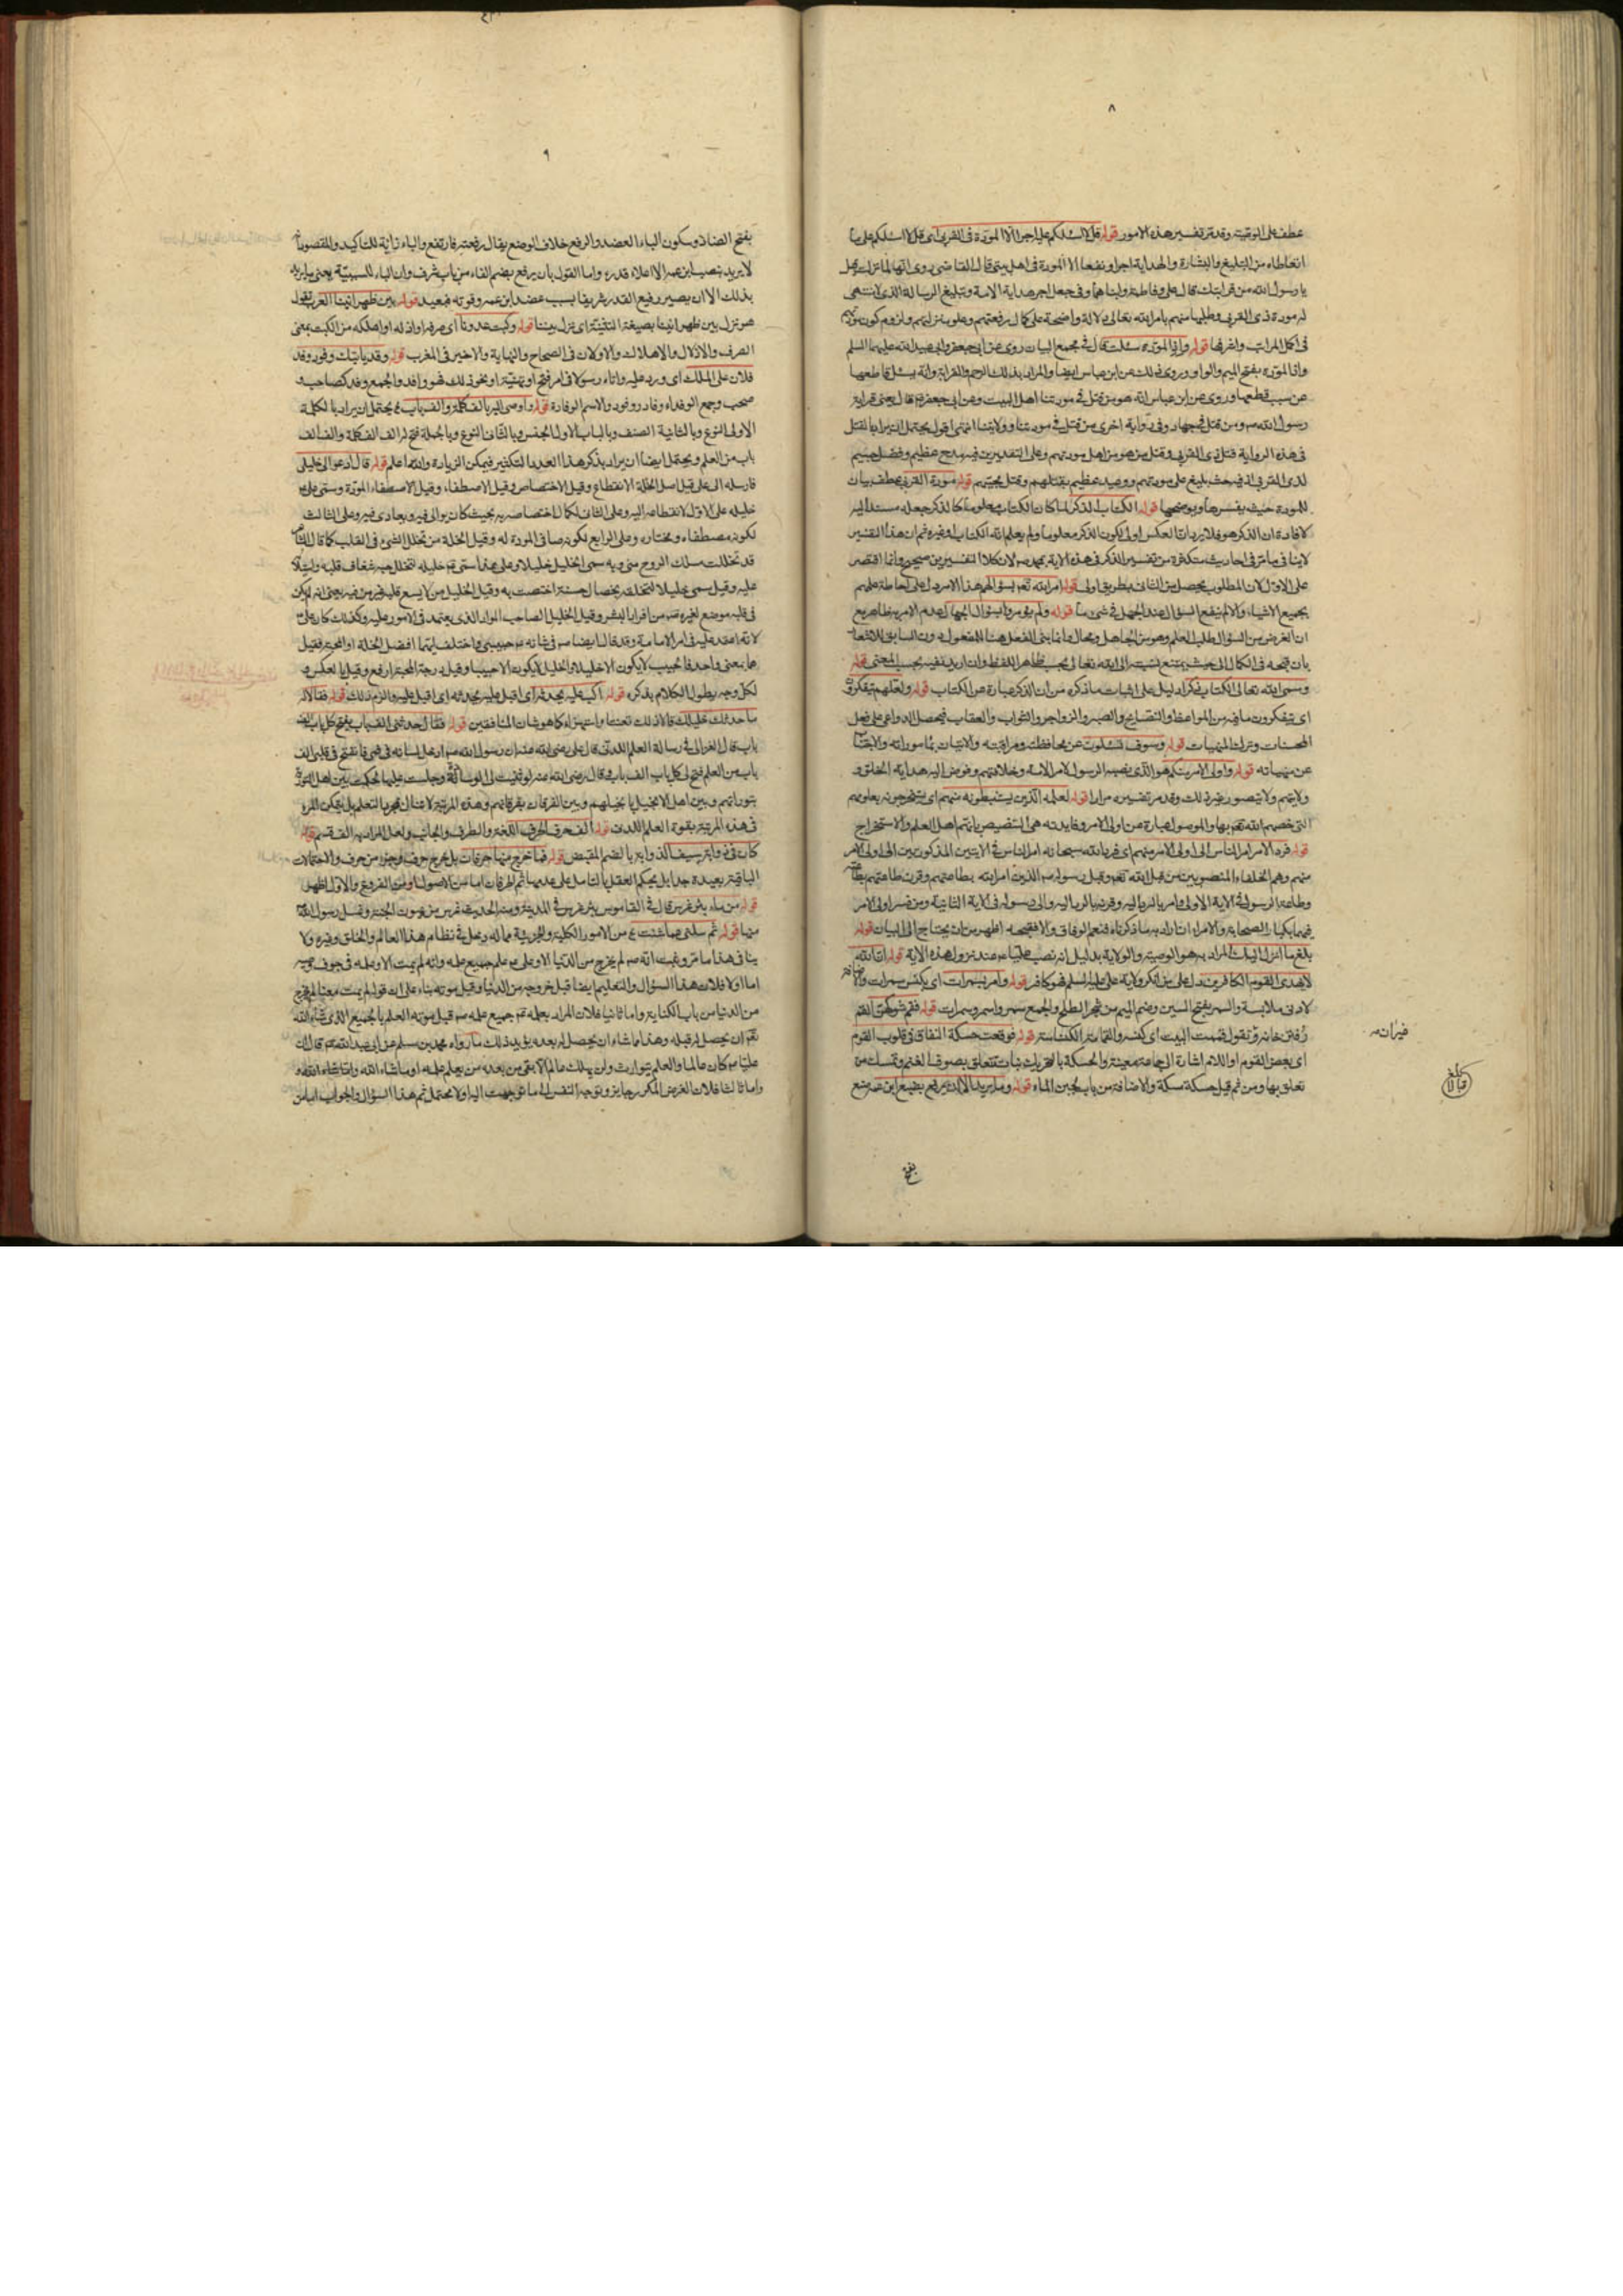 ٨
عطف على التوقيت وقد مر تفسير هذه الامور قوله قل لا اسئلكم عليه اجرا الا المودة في القربى اى قل لا اسئلكم على ما
اتعاطاه من التبليغ والبشارة والهداية اجرا ونفعا الا المودة في اهل بيتى قال القاضى روى انها لما نزلت قيل
يا رسول الله من قرابتك قال على وفاطمة وابناهما وفي جعل اجر هداية الامة وتبليغ الرسالة الذى لا تنتهى
له مودة ذى القربى وطلبها منهم بامر الله تعالى دلالة واضحة على كمال رفعتهم وعلو منزلتهم ولزوم كون
في اكمل المراتب واشرفها قوله واذا المودة سئلت قال في مجمع البيان روى عن ابى جعفر وابى عبد الله عليهما السلم
واذا المودة بفتح الميم والواو وروى ذلك عن ابن عباس ايضا والمراد بذلك الرحم والقرابة وانه يسئل قاطعها
عن سبب قطعها وروى عن ابن عباس انه هو من قتل في مودتنا اهل البيت وعن ابى جعفر قال يعنى قرابة
رسول الله ص ومن قتل في جهاد وفي رواية اخرى من قتل في مودتنا وولايتنا انتهى اقول يحتمل ان يراد بالقتل
في هذه الرواية قتل ذى القربى وقتل من هو من اهل مودتهم وعلى التقديرين فيه مدح عظيم وفضل جسيم
لذى القربى اذ فيه حث بليغ على مودتهم ووعيد عظيم بقتلهم وقتل محبيهم قوله مودة القربى عطف بيان
للمودة حيث يفسرها ويوضحها قوله الكتاب الذكر لما كان الكتاب معلوما كالذكر جعله مسندا اليه
لافادة ان الذكر هو فلا يرد ان العكس اولى لكون الذكر معلوما ولم يعلم انه الكتاب او غيره ثم ان هذا التفسير
لا ينافى ما مر في احاديث متكثرة من تفسير الذكر في هذه الآية بمحمد ص لان كلا التفسيرين صحيح وانما اقتصر
على الاول لان المطلوب يحصل من الثانى بطريق اولى قوله امر الله تعم بسؤالهم هذا الامر دل على احاطة علمهم
بجميع الاشياء والا لم ينفع السؤال عند الجهل في شىء ما قوله ولم يؤمروا بسؤال الجهال عدم الامر به ظاهر مع
ان الغرض من السؤال طلب العلم وهو من الجاهل محال وانما بنى الفعل هنا للمفعول دون السابق للاشعار
بان قبحه في الكمال الى حيث يمتنع نسبته الى الله تعالى بحسب ظاهر اللفظ وان اريد نفيه بحسب المعنى قوله
وسمى الله تعالى الكتاب ذكرا دليل على اثبات ما ذكره من ان الذكر عبارة عن الكتاب قوله ولعلهم يتفكرون
اى يتفكرون ما فيه من المواعظ والنصايح والصبر والزواجر والثواب والعقاب فيحصل الدواعى على فعل
الحسنات وترك المنهيات قوله وسوف تسئلون عن محافظته ومراقبته والاتيان بمأموراته والاجتناب
عن منهياته قوله واولى الامر منكم هو الذى نصبه الرسول لامر الامة وخلافتهم وفوض اليه هداية الخلق و
ولايتهم ولا يتصور غير ذلك وقد مر تفسيره مرارا قوله لعلمه الذين يستنبطونه منهم اى يستخرجونه بعلومهم
التى خصهم الله تعم بها والموصول عبارة عن اولى الامر وفايدته هى التنصيص بانهم اهل العلم والاستخراج
قوله فرد الامر امر الناس الى اولى الامر منهم اى فرد الله سبحانه امر الناس في الآيتين المذكورتين الى اولى الامر
منهم وهم الخلفاء المنصوبين من قبل الله تعم وقبل رسوله ص الذين امر الله بطاعتهم وقرن طاعتهم بطاعته
وطاعة الرسول في الآية الاولى وامر بالرد اليه وقرنه بالرد اليه والى رسوله في الآية الثانية ومن فسر اولى الامر
فيهما بكبار الصحابة والامراء ان اراد به ما ذكرناه فنعم الوفاق والا فقبحه اظهر من ان يحتاج الى البيان قوله
بلغ ما انزل اليك المراد به هو الوصية والولاية بدليل انه نصب عليا ع عند نزول هذه الآية قوله ان الله
لا يهدى القوم الكافرين دل على من انكر ولاية على عليه السلم فهو كافر قوله وامر بسمرات اى بكنس سمرات والاضافة
لادنى ملابسة والسمر بفتح السين وضم الميم من شجر الطلح والجمع سمر واسمر وسمرات قوله فقم شوكهن القم
رفتن خانه وتقول قممت البيت اى كنسته والقمامة الكناسة قوله فوقعت حسكة النفاق في قلوب القوم
اى بعض القوم او اللام اشارة الى جماعة معينة والحسكة بالتحريك نبات تتعلق بصوف الغنم وتمسك من
تعلق بها ومن ثم قيل حسكة مسكة والاضافة من باب لجين الماء قوله وما يريد الا ان يرفع بضبع ابن عمه ضبع
بفتح
٩
بفتح الضاد وسكون الباء العضد والرفع خلاف الوضع يقال رفعته فارتفع والباء زايدة للتاكيد والمقصود انه
لا يريد بنصب ابن عمه الا اعلاء قدره واما القول بان يرفع بضم الفاء من باب شرف وان الباء للسببية يعنى ما يريد
بذلك الا ان يصير رفيع القدر شريفا بسبب عضد ابن عمه وقوته فبعيد قوله بين ظهرانينا العرب تقول
هو نزل بين ظهرانينا بصيغة التثنية اى نزل بيننا قوله وكبت عدونا اى صرفه او اذله او اهلكه من الكبت بمعنى
الصرف والاذلال والاهلاك والاولان في الصحاح والنهاية والاخير في المغرب قوله وقد ياتيك وفود وفد
فلان على الملك اى ورد عليه واتاه رسولا في امر فتح او تهنية او نحو ذلك فهو وافد والجمع وفد كصاحب و
صحب وجمع الوفد اوفاد ووفود والاسم الوفادة قوله واوصى اليه بالف كلمة والف باب يحتمل ان يراد بالكلمة
الاولى النوع وبالثانية الصنف وبالباب الاول الجنس وبالثانى النوع وبالجملة فتح له الف الف كلمة والف الف
باب من العلم ويحتمل ايضا ان يراد بذكر هذا العدد التكثير فيمكن الزيادة والله اعلم قوله قال ادعوا لى خليلى
فارسله الى على قيل اصل الخلة الانقطاع وقيل الاختصاص وقيل الاصطفاء وقيل الاصطفاء المودة وسمى على ع
خليله على الاول لانقطاعه اليه وعلى الثانى لكمال اختصاصه به بحيث كان يوالى فيه ويعادى فيه وعلى الثالث
لكونه مصطفاه ومختاره وعلى الرابع لكونه صافى المودة له وقيل الخلة من تخلل الشىء في القلب كما قال الشاعر
قد تخللت مسلك الروح منى وبه سمى الخليل خليلا وعلى هذا سمى ع خليله لتخلل حبه شغاف قلبه
عليه وقيل سمى خليلا لتخلقه بخصال حسنة اختصت به وقيل الخليل من لا يسع قلبه غير من فيه يعنى انه لم يكن
في قلبه موضع لغيره ص من اقرباء البشر وقيل الخليل الصاحب المواد الذى يعتمد في الامور عليه وكذلك كان على ع
لانه اعتمد عليه في امر الامامة وقد قال ايضا ص في شانه ع حبيبى واختلف ايتهما افضل الخلة او المحبة فقيل
هما بمعنى واحد فالحبيب لا يكون الا خليلا والخليل لا يكون الا حبيبا وقيل درجة المحبة ارفع وقيل بالعكس و
لكل وجه يطول الكلام بذكره قوله اكب عليه يحدثه اى اقبل عليه يحدثه اى اقبل عليه والزم ذلك قوله فقالا له
ما حدثك خليلك قالا ذلك تعنتا واستهزاء كما هو شان المنافقين قوله فقال حدثنى الف باب يفتح كل باب الف
باب قال الغزالى في رسالة العلم اللدنى قال على رضى الله عنه ان رسول الله ص ادخل لسانه في فمى فانفتح في قلبى الف
باب من العلم فتح لى كل باب الف باب وقال رضى الله عنه لو ثنيت لى الوسادة وجلست عليها لحكمت بين اهل التورية
بتوراتهم وبين اهل الانجيل بانجيلهم وبين الفرقان بفرقانهم وهذه المرتبة لا تنال بمجرد التعلم بل يتمكن المرء
في هذه المرتبة بقوة العلم اللدنى قوله الف حرف الحرف اللغة والطرف والجانب ولعل المراد به الف قسم قوله
كان في ذوابة سيف الذوابة بالضم المقبض قوله فما خرج منها حرفان بل خرج حرف وجزء من حرف والاحتمالات
الباقية بعيدة جدا بل يحكم العقل بالتامل على عدمها ثم الحرفان اما من الاصول او من الفروع والاول اظهر
قوله من ماء بئر غرس قال في القاموس بئر غرس في المدينة ومنه الحديث غرس من عيون الجنة وغسل رسول الله ص
منها قوله ثم سلنى عما شئت من الامور الكلية والجزئية مما له دخل في نظام هذا العالم والخلق وغيره ولا
ينافى هذا ما مر وغيب انه ص لم يخرج من الدنيا الا وعلى ع علم جميع علمه وانه لم يمت الا وعلمه في جوف وصيه
اما اولا فلان هذا السؤال والتعليم ايضا قبل خروجه من الدنيا وقبل موته بناء على ان قوله لم يمت معناه لم يخرج
من الدنيا من باب الكناية واما ثانيا فلان المراد بعلمه ثم جميع علمه ص قبل موته العلم بالجميع الذى شاء الله
تعم ان يحصل له قبله وهذا ما شاء ان يحصل له بعده يؤيد ذلك ما رواه محمد بن مسلم عن ابى عبد الله ع قال ان
عليا ع كان عالما والعلم يتوارث ولن يهلك عالم الا بقى من بعده من يعلم علمه او ما شاء الله
واما ثالثا فلان الغرض المكرر جايز وتوجه النفس الى ما توجهت اليه اولا محتمل ثم هذا السؤال والجواب اما من